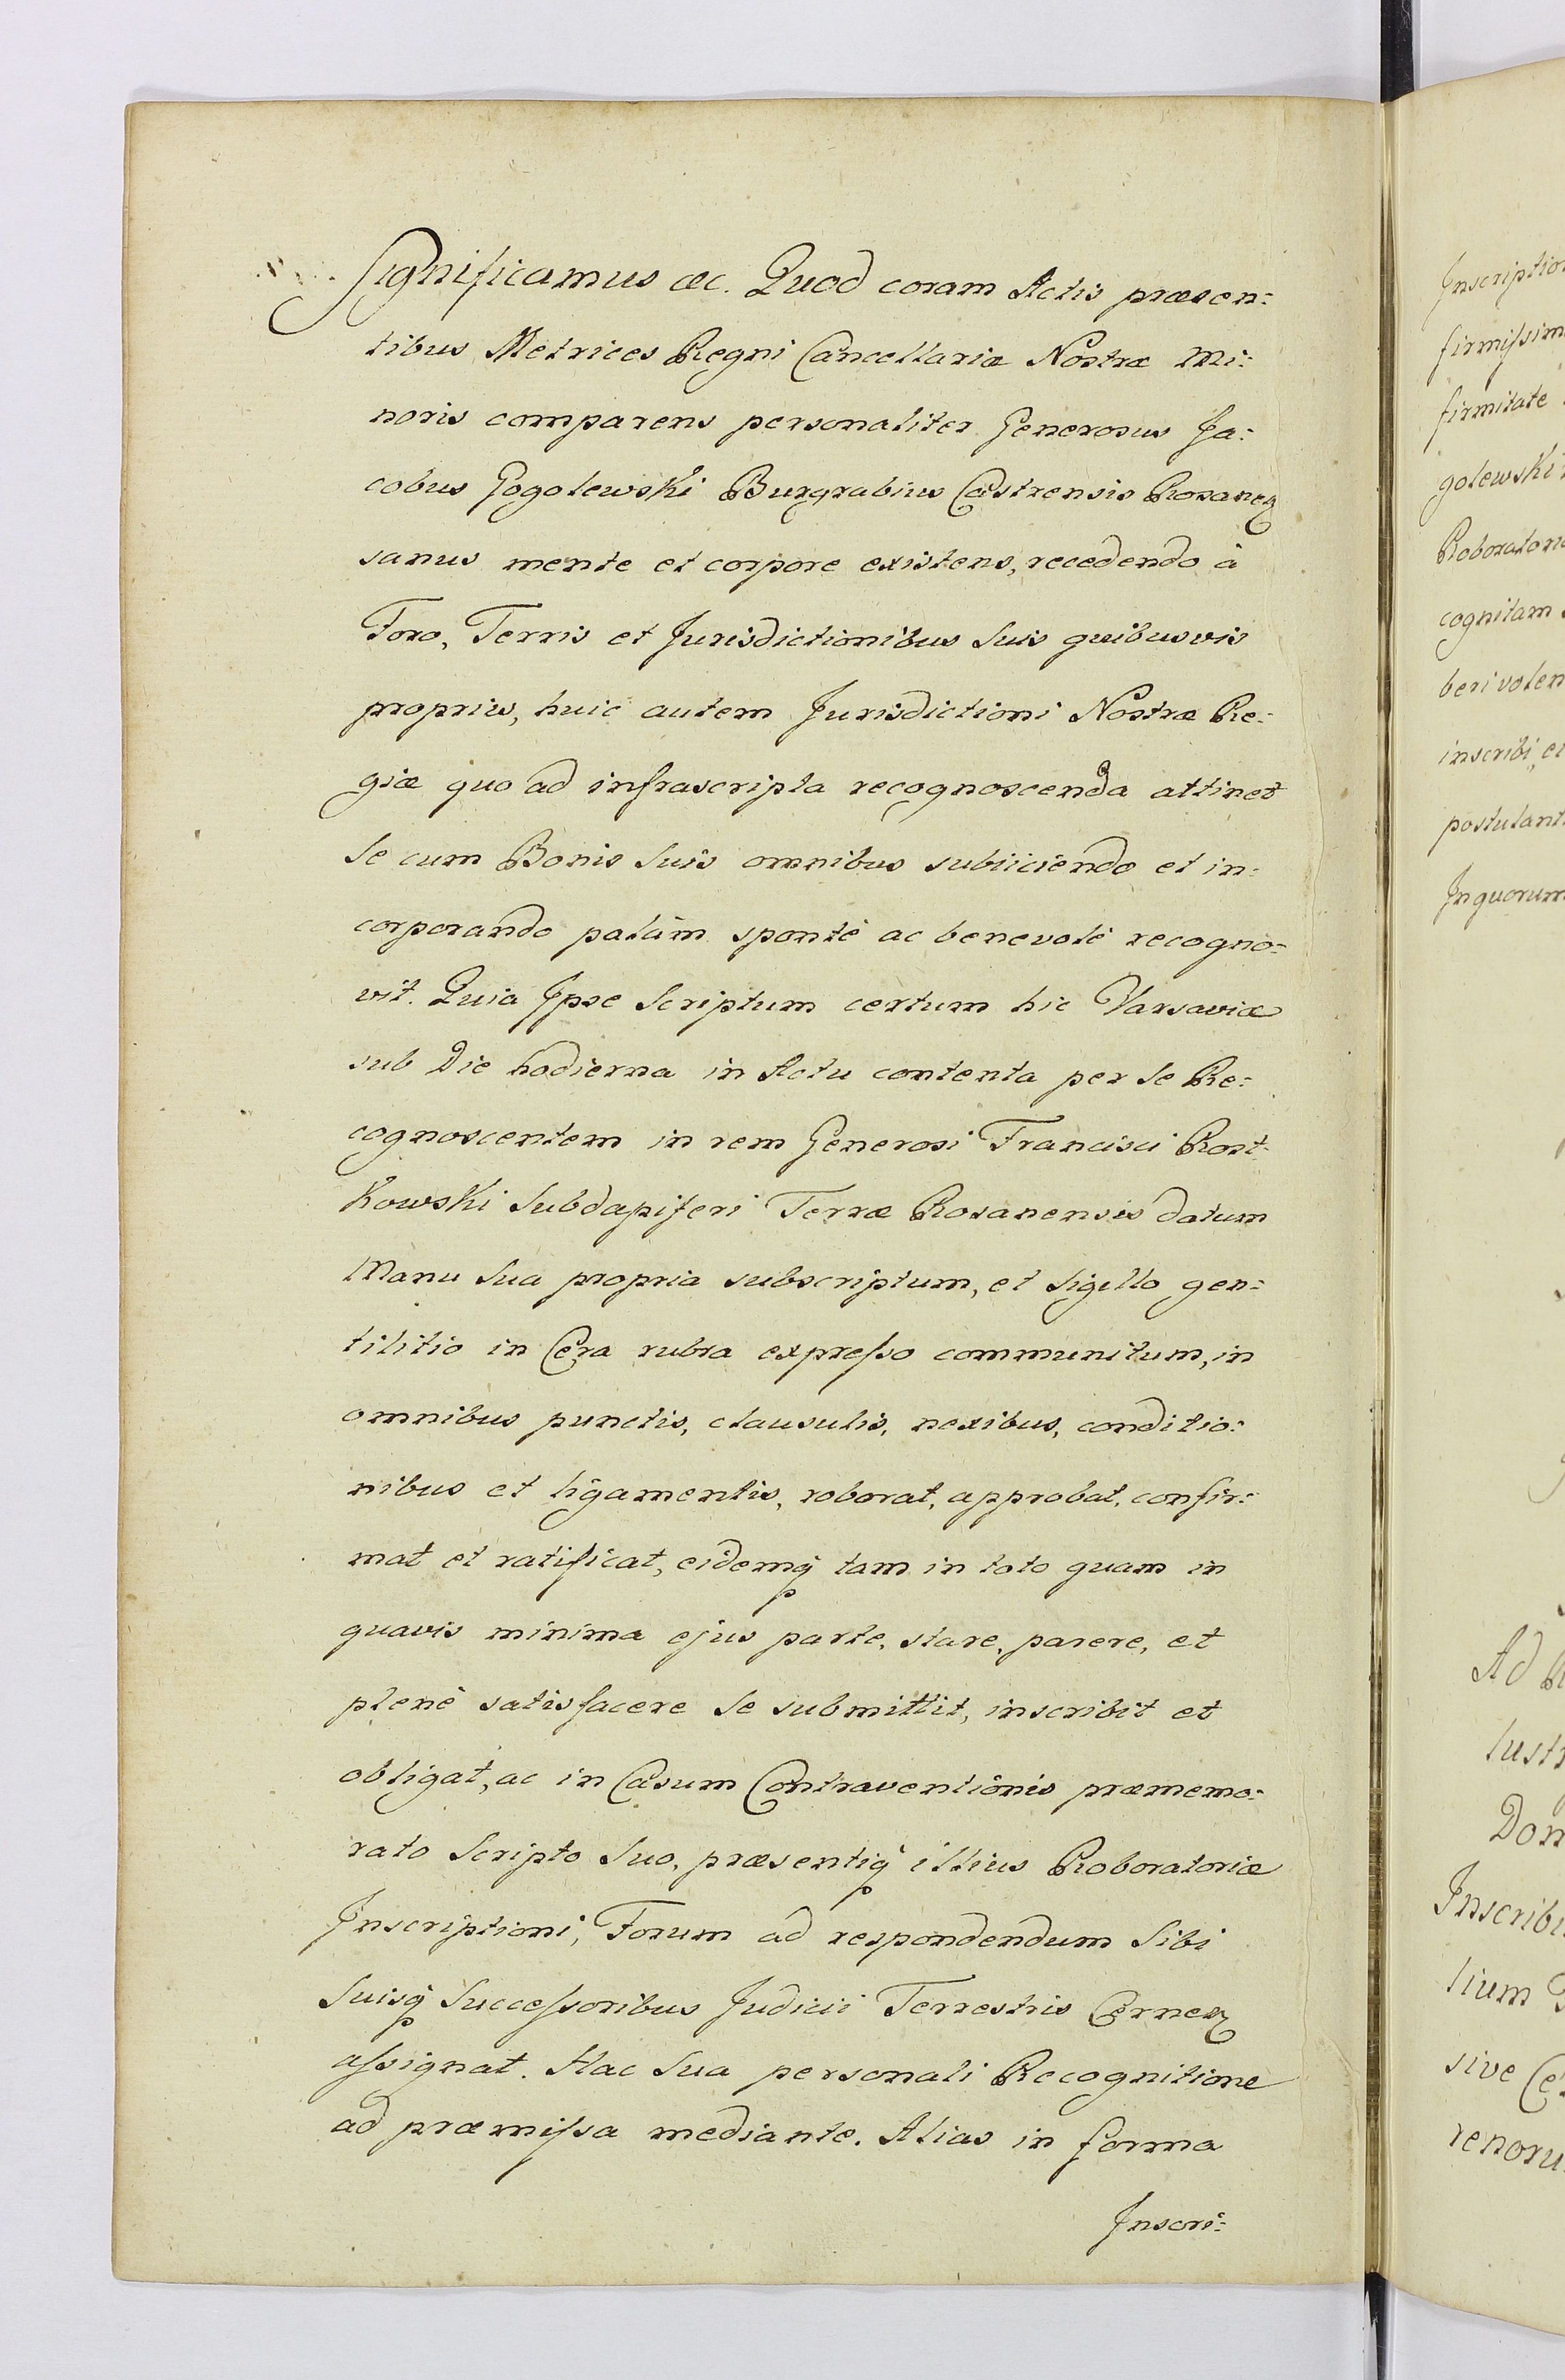 Significamus &c. Quod coram Actis præsen=
tibus Metrices Regni Cancellariæ Nostræ Mi=
noris comparens personaliter Generosus Ja=
cobus Gogolewski Burgrabius Castrensis Rosanen
sanus mente et corpore existens, recedendo à
Foro, Terris et Jurisdictionibus Suis quibusvis
propriis, huic autem Jurisdictioni Nostræ Re=
giæ quo ad infrascripta recognoscenda attinet
Se cum Bonis Suis omnibus subiiciendo et in=
corporando palàm spontè ac benevolè recogno=
vit. Quia Ipse Scriptum certum hic Varsaviæ
sub Die hodierna in Actu contenta per Se Re=
cognoscentem in rem Generosi Francisci Rost=
kowski Subdapiferi Terræ Rosanensis datum
Manu Sua propria subscriptum, et Sigillo gen=
tilitio in Cera rubra expreſso communitum, in
omnibus punctis, clausulis, nexibus, conditio=
nibus et ligamentis, roborat, approbat, confir=
mat et ratificat, eidemq tam in toto quam in
quavis minima ejus parte, stare, parere, et
plenè satisfacere Se submittit, inscribit et
obligat, ac in Casum Contraventionis præmemo=
rato Scripto Suo, præsentiq illius Roboratoriæ
Inscriptioni, Forum ad respondendum Sibi
Suisq Succeſsoribus Judicii Terrestris Cernen
aſsignat. Hac Sua personali Recognitione
ad præmiſsa mediante. Alias in forma
Inscri=
Inscriptio
firmiſsim
firmitate
golewski
Roborator
cognitam
beri volen
inscribi, et
postulant
In quorum
Ad
lustr
Don
Inscribi
lium
sive Ce
renoru